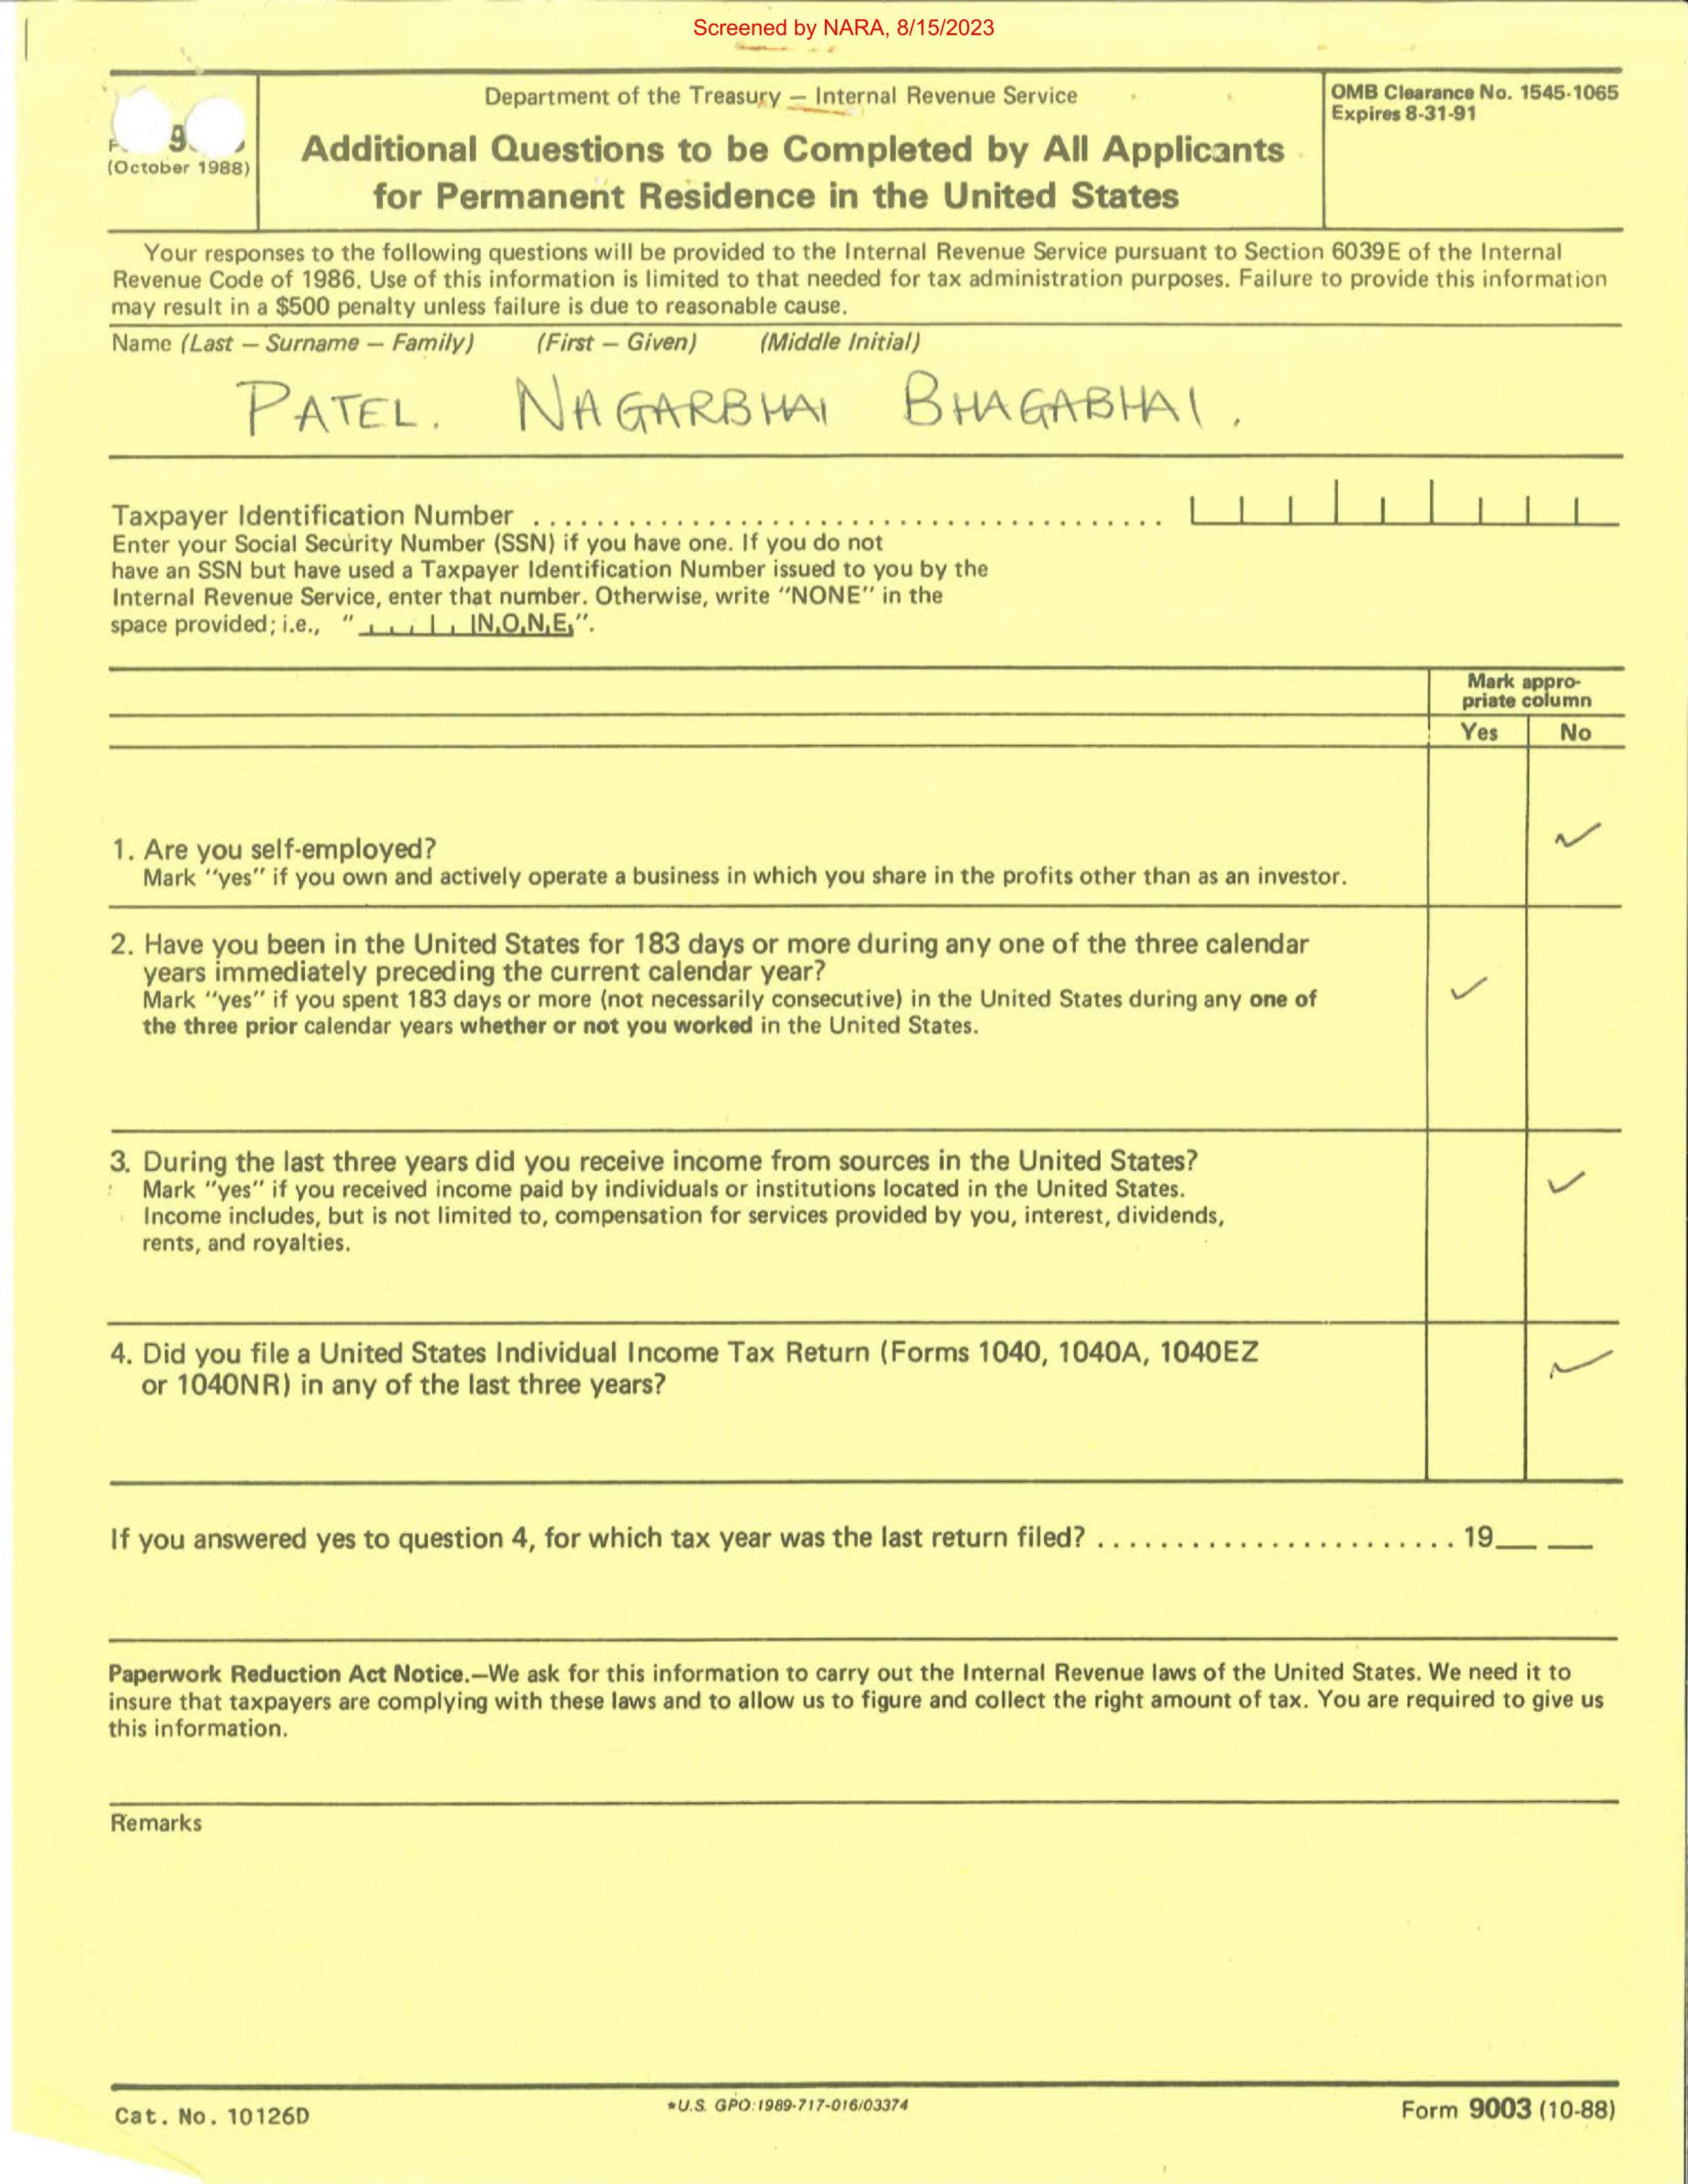 Screened by NARA, 8/15/2023
(October 1988)
Department of the Treasury — Internal Revenue Service
Additional Questions to be Completed by All Applicants
for Permanent Residence in the United States
OMB Clearance No. 1545-1065
Expires 8-31-91
Your responses to the following questions will be provided to the Internal Revenue Service pursuant to Section 6039E of the Internal
Revenue Code of 1986. Use of this information is limited to that needed for tax administration purposes. Failure to provide this information
may result in a $500 penalty unless failure is due to reasonable cause.
Name (Last — Surname — Family) (First — Given) (Middle Initial)
PATEL. NAGARBHAI BHAGABHAI.
Taxpayer Identification Number ........................................
Enter your Social Security Number (SSN) if you have one. If you do not
have an SSN but have used a Taxpayer Identification Number issued to you by the
Internal Revenue Service, enter that number. Otherwise, write "NONE" in the
space provided; i.e., " NONE".
Mark appro-
priate column
Yes No
1. Are you self-employed?
Mark "yes" if you own and actively operate a business in which you share in the profits other than as an investor.
2. Have you been in the United States for 183 days or more during any one of the three calendar
years immediately preceding the current calendar year?
Mark "yes" if you spent 183 days or more (not necessarily consecutive) in the United States during any one of
the three prior calendar years whether or not you worked in the United States.
3. During the last three years did you receive income from sources in the United States?
Mark "yes" if you received income paid by individuals or institutions located in the United States.
Income includes, but is not limited to, compensation for services provided by you, interest, dividends,
rents, and royalties.
4. Did you file a United States Individual Income Tax Return (Forms 1040, 1040A, 1040EZ
or 1040NR) in any of the last three years?
If you answered yes to question 4, for which tax year was the last return filed? ....................... 19__ __
Paperwork Reduction Act Notice.—We ask for this information to carry out the Internal Revenue laws of the United States. We need it to
insure that taxpayers are complying with these laws and to allow us to figure and collect the right amount of tax. You are required to give us
this information.
Remarks
Cat. No. 10126D
*U.S. GPO:1989-717-016/03374
Form 9003 (10-88)